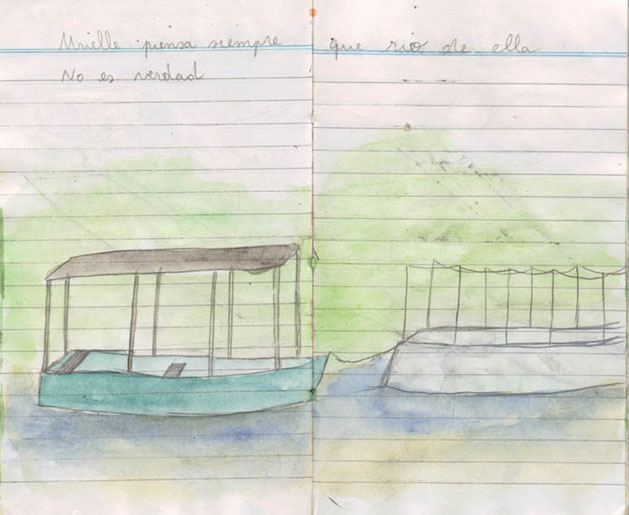 Urielle piensa siempre que rio de ella
No es verdad